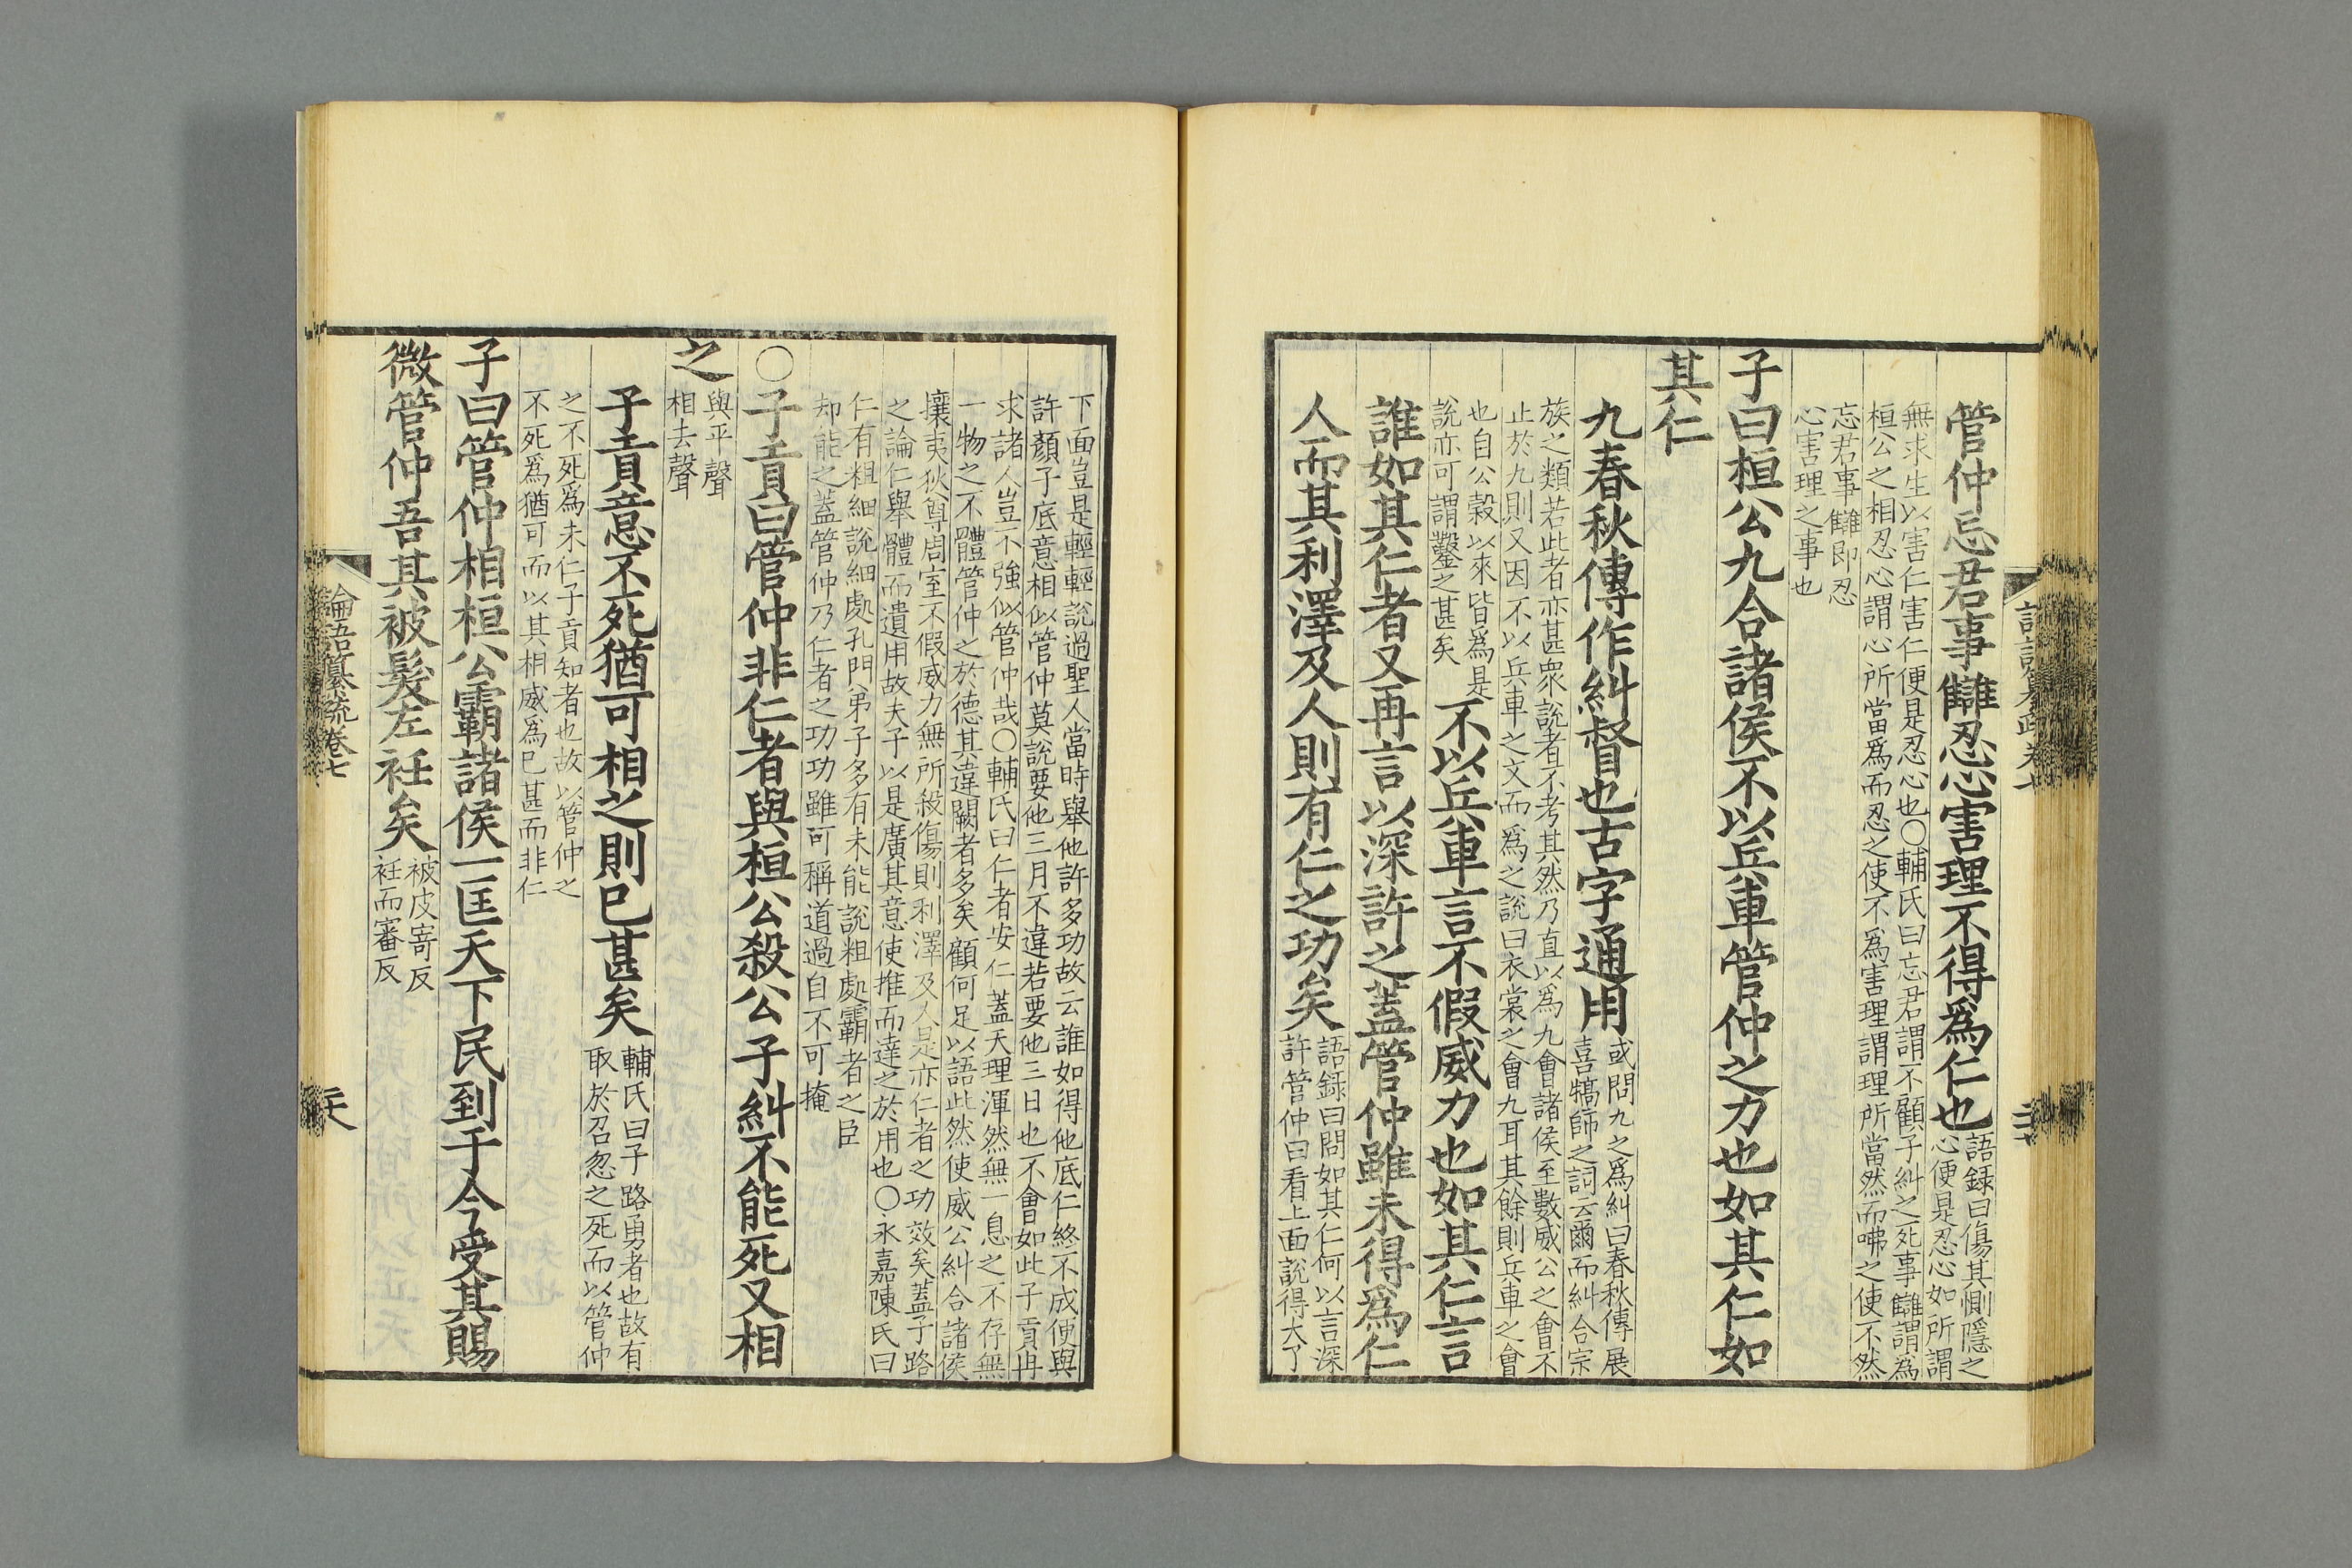 管仲忘君事讎忍心害理不得爲仁也
語録曰傷其惻隱之
心便是忍心如所謂
無求生以害仁害仁便是忍心也○輔氏曰忘君謂不顧子糾之死事讎謂爲
桓公之相忍心謂心所當爲而忍之使不爲害理謂理所當然而咈之使不然
忘君事讎即忍
心害理之事也
子曰桓公九合諸侯不以兵車管仲之力也如其仁如
其仁
九春秋傳作糾督也古字通用
或問九之爲糾曰春秋傳展
喜犒師之詞云爾而糾合宗
族之類若此者亦甚衆說者不考其然乃直以爲九會諸侯至數威公之會不
止於九則又因不以兵車之文而爲之説曰衣裳之會九耳其餘則兵車之會
也自公穀以來皆爲是
説亦可謂鑿之甚矣
不以兵車言不假威力也如其仁言
誰如其仁者又再言以深許之蓋管仲雖未得爲仁
人而其利澤及人則有仁之功矣
語録曰問如其仁何以言深
許管仲曰看上面說得大了
下面豈是輕輕說過聖人當時舉他許多功故云誰如得他底仁終不成便與
許顏子底意相似管仲莫說要他三月不違若要他三日也不會如此子貢冉
求諸人豈不強似管仲哉○輔氏曰仁者安仁蓋天理渾然無一息之不存無
一物之不體管仲之於德其違闕者多矣顧何足以語此然使威公糾合諸侯
攘夷狄尊周室不假威力無所殺傷則利澤及人是亦仁者之功效矣蓋子路
之論仁舉一體而遺用故夫子以是廣其意使推而達之於用也○永嘉陳氏曰
仁有粗細說細處孔門弟子多有未能說粗處霸者之臣
却能之蓋管仲乃仁者之功功雖可稱道過自不可掩
○子貢曰管仲非仁者與桓公殺公子糾不能死又相
之
與平聲
相去聲
子貢意不死猶可相之則已甚矣
輔氏曰子路勇者也故有
取於召忽之死而以管仲
之不死爲未仁子貢知者也故以管仲之
不死爲猶可而以其相威爲已甚而非仁
子曰管仲相桓公霸諸侯一匡天下民到于今受其賜
微管仲吾其被髮左衽矣
被皮寄反
衽而審反
論語纂疏卷七